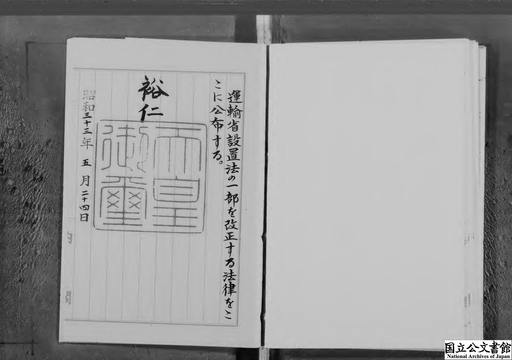 運輸省設置法の一部を改正する法律をこ
こに公布する。
裕仁
天皇
御璽
昭和三十三年五月二十四日
国立公文書館
National Archives of Japan